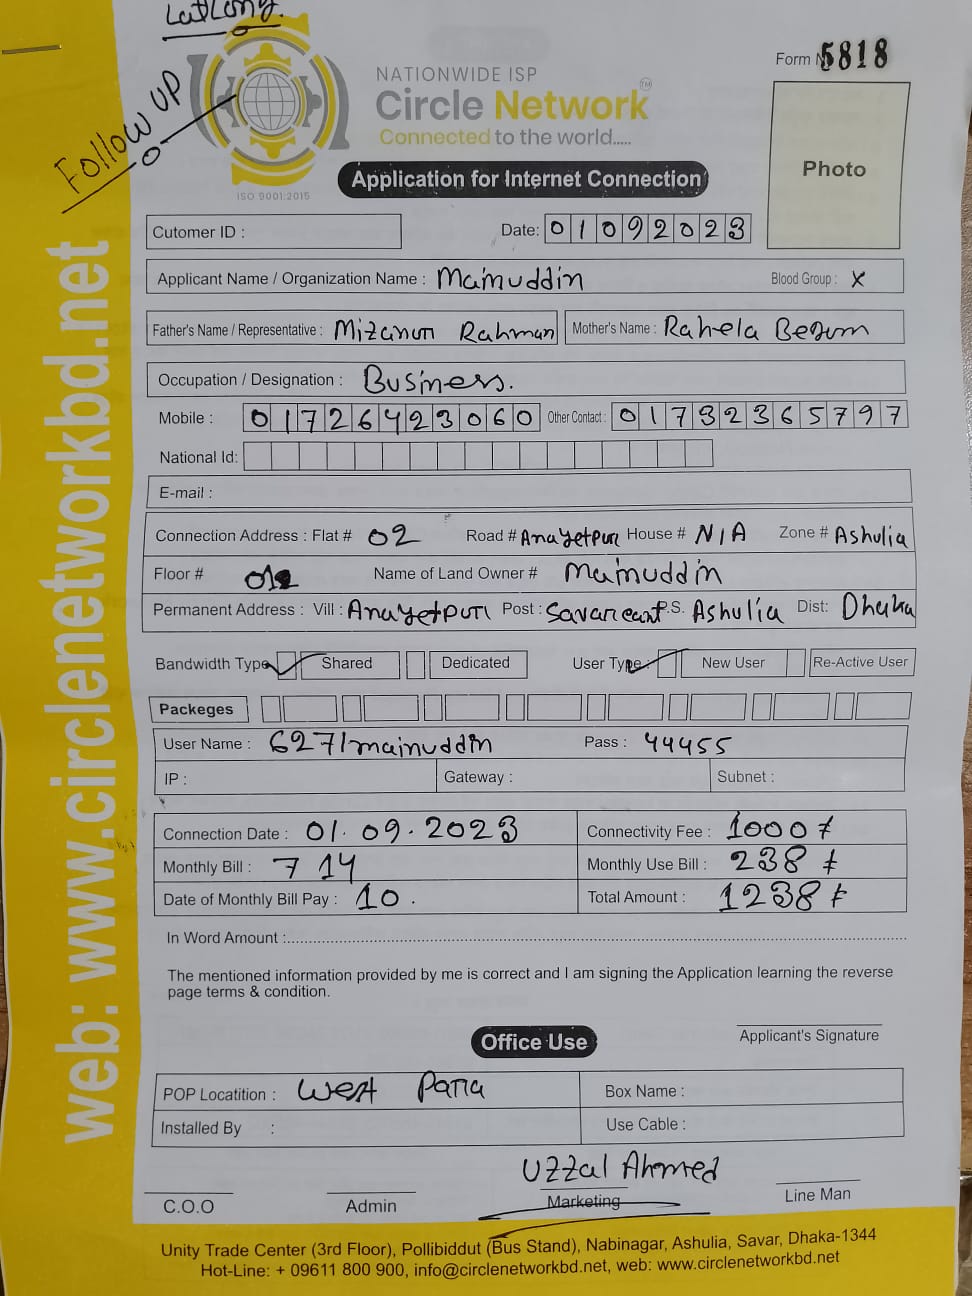 LatLong.
Follow UP
Form № 5818
NATIONWIDE ISP
Circle Network TM
Connected to the world.....
ISO 9001:2015
Photo
Application for Internet Connection
Cutomer ID :
Date: 01092023
Applicant Name / Organization Name : Mainuddin Blood Group : X
Father's Name / Representative : Mizanur Rahman Mother's Name : Rahela Begum
Occupation / Designation : Business.
Mobile : 01726423060 Other Contact : 01732365797
National Id:
E-mail :
Connection Address : Flat # 02 Road # Anayetpur House # N/A Zone # Ashulia
Floor # Name of Land Owner # Mainuddin
Permanent Address : Vill : Anayetpur Post : Savarcant P.S. Ashulia Dist: Dhaka
Bandwidth Type Shared Dedicated User Type : New User Re-Active User
Packeges
User Name : 6271mainuddin Pass : 44455
IP : Gateway : Subnet :
Connection Date : 01.09.2023 Connectivity Fee : 1000/
Monthly Bill : 714 Monthly Use Bill : 238/
Date of Monthly Bill Pay : 10. Total Amount : 1238/
In Word Amount :
The mentioned information provided by me is correct and I am signing the Application learning the reverse
page terms & condition.
Applicant's Signature
Office Use
POP Locatition : West Para Box Name :
Installed By : Use Cable :
Uzzal Ahmed
C.O.O Admin Marketing Line Man
Unity Trade Center (3rd Floor), Pollibiddut (Bus Stand), Nabinagar, Ashulia, Savar, Dhaka-1344
Hot-Line: + 09611 800 900, info@circlenetworkbd.net, web: www.circlenetworkbd.net
web: www.circlenetworkbd.net